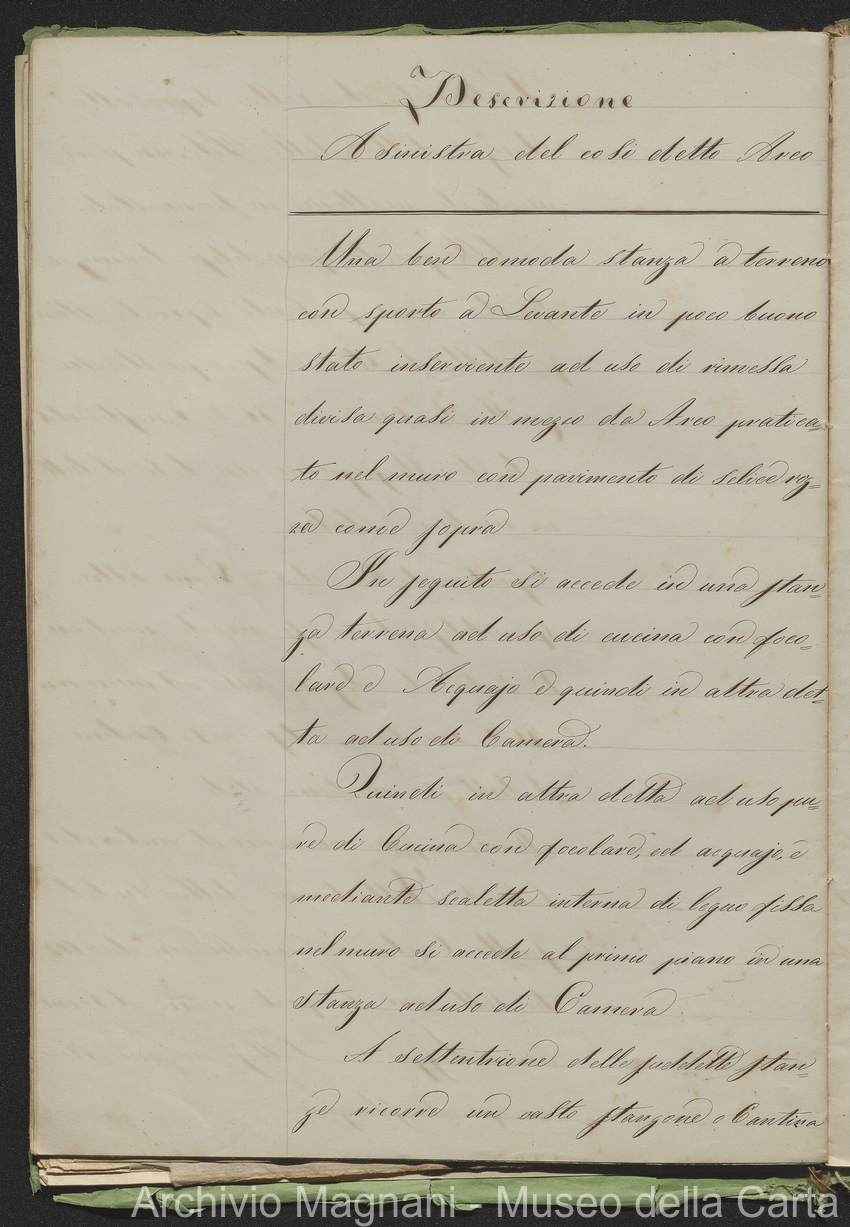 Descrizione
A sinistra del cosi detto Arco
Una ben comoda stanza a terreno
con sporto a Levante in poco buono
stato inserviente ad uso di rimessa
divisa quasi in mezzo da Arco pratica=
to nel muro con pavimento di selice roz=
za come sopra
In seguito si accede in una stan=
za terrena ad uso di cucina con foco=
lare e Acquajo e quindi in altra det=
ta ad uso di Camera.
Quindi in altra detta ad uso pu=
re di Cucina con focolare, ed acquajo, e
mediante scaletta interna di legno fissa
nel muro si accede al primo piano in una
stanza ad uso di Camera
A settentrione delle suddette stan=
ze ricorre un vasto stanzone o Cantina
Archivio Magnani - Museo della Carta